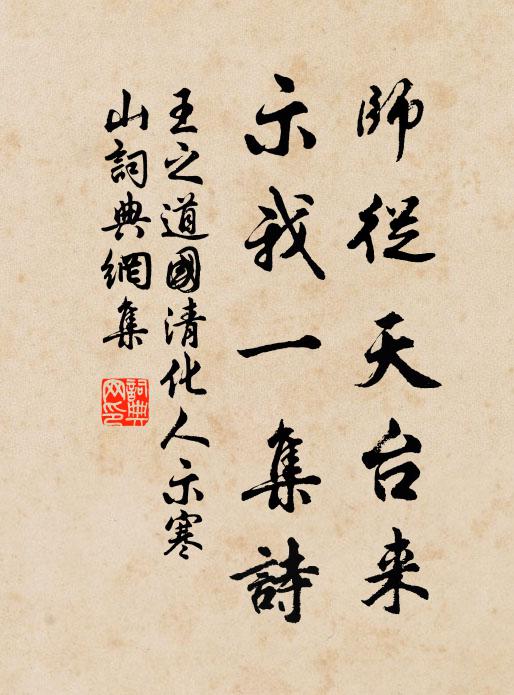 師從天台来
示我一集詩
王之道國清化人示寒
山詞典網集
詞典
网印